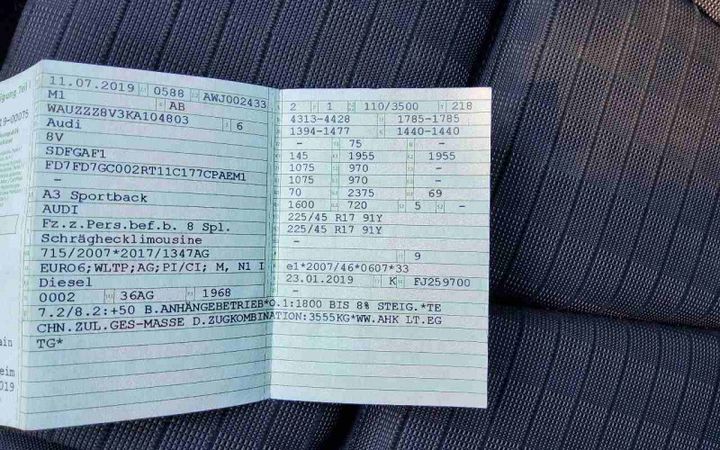 11.07.2019 0588 AWJ002433
M1 AB
WAUZZZ8V3KA104803 6
Audi
8V
SDFGAF1
FD7FD7GC002RT11C177CPAEM1
-
A3 Sportback
AUDI
Fz.z.Pers.bef.b. 8 Spl.
Schräghecklimousine
715/2007*2017/1347AG
EURO6;WLTP;AG;PI/CI; M, N1 I
Diesel
0002 36AG 1968
2 1 110/3500 218
4313-4428 1785-1785
1394-1477 1440-1440
- 75 -
145 1955 1955
1075 970 -
1075 970 -
70 2375 69
1600 720 5 -
225/45 R17 91Y
225/45 R17 91Y
-
9
e1*2007/46*0607*33
23.01.2019 K FJ259700
-
7.2/8.2:+50 B.ANHÄNGEBETRIEB*O.1:1800 BIS 8% STEIG.*TE
CHN.ZUL.GES-MASSE D.ZUGKOMBINATION:3555KG*WW.AHK LT.EG
TG*